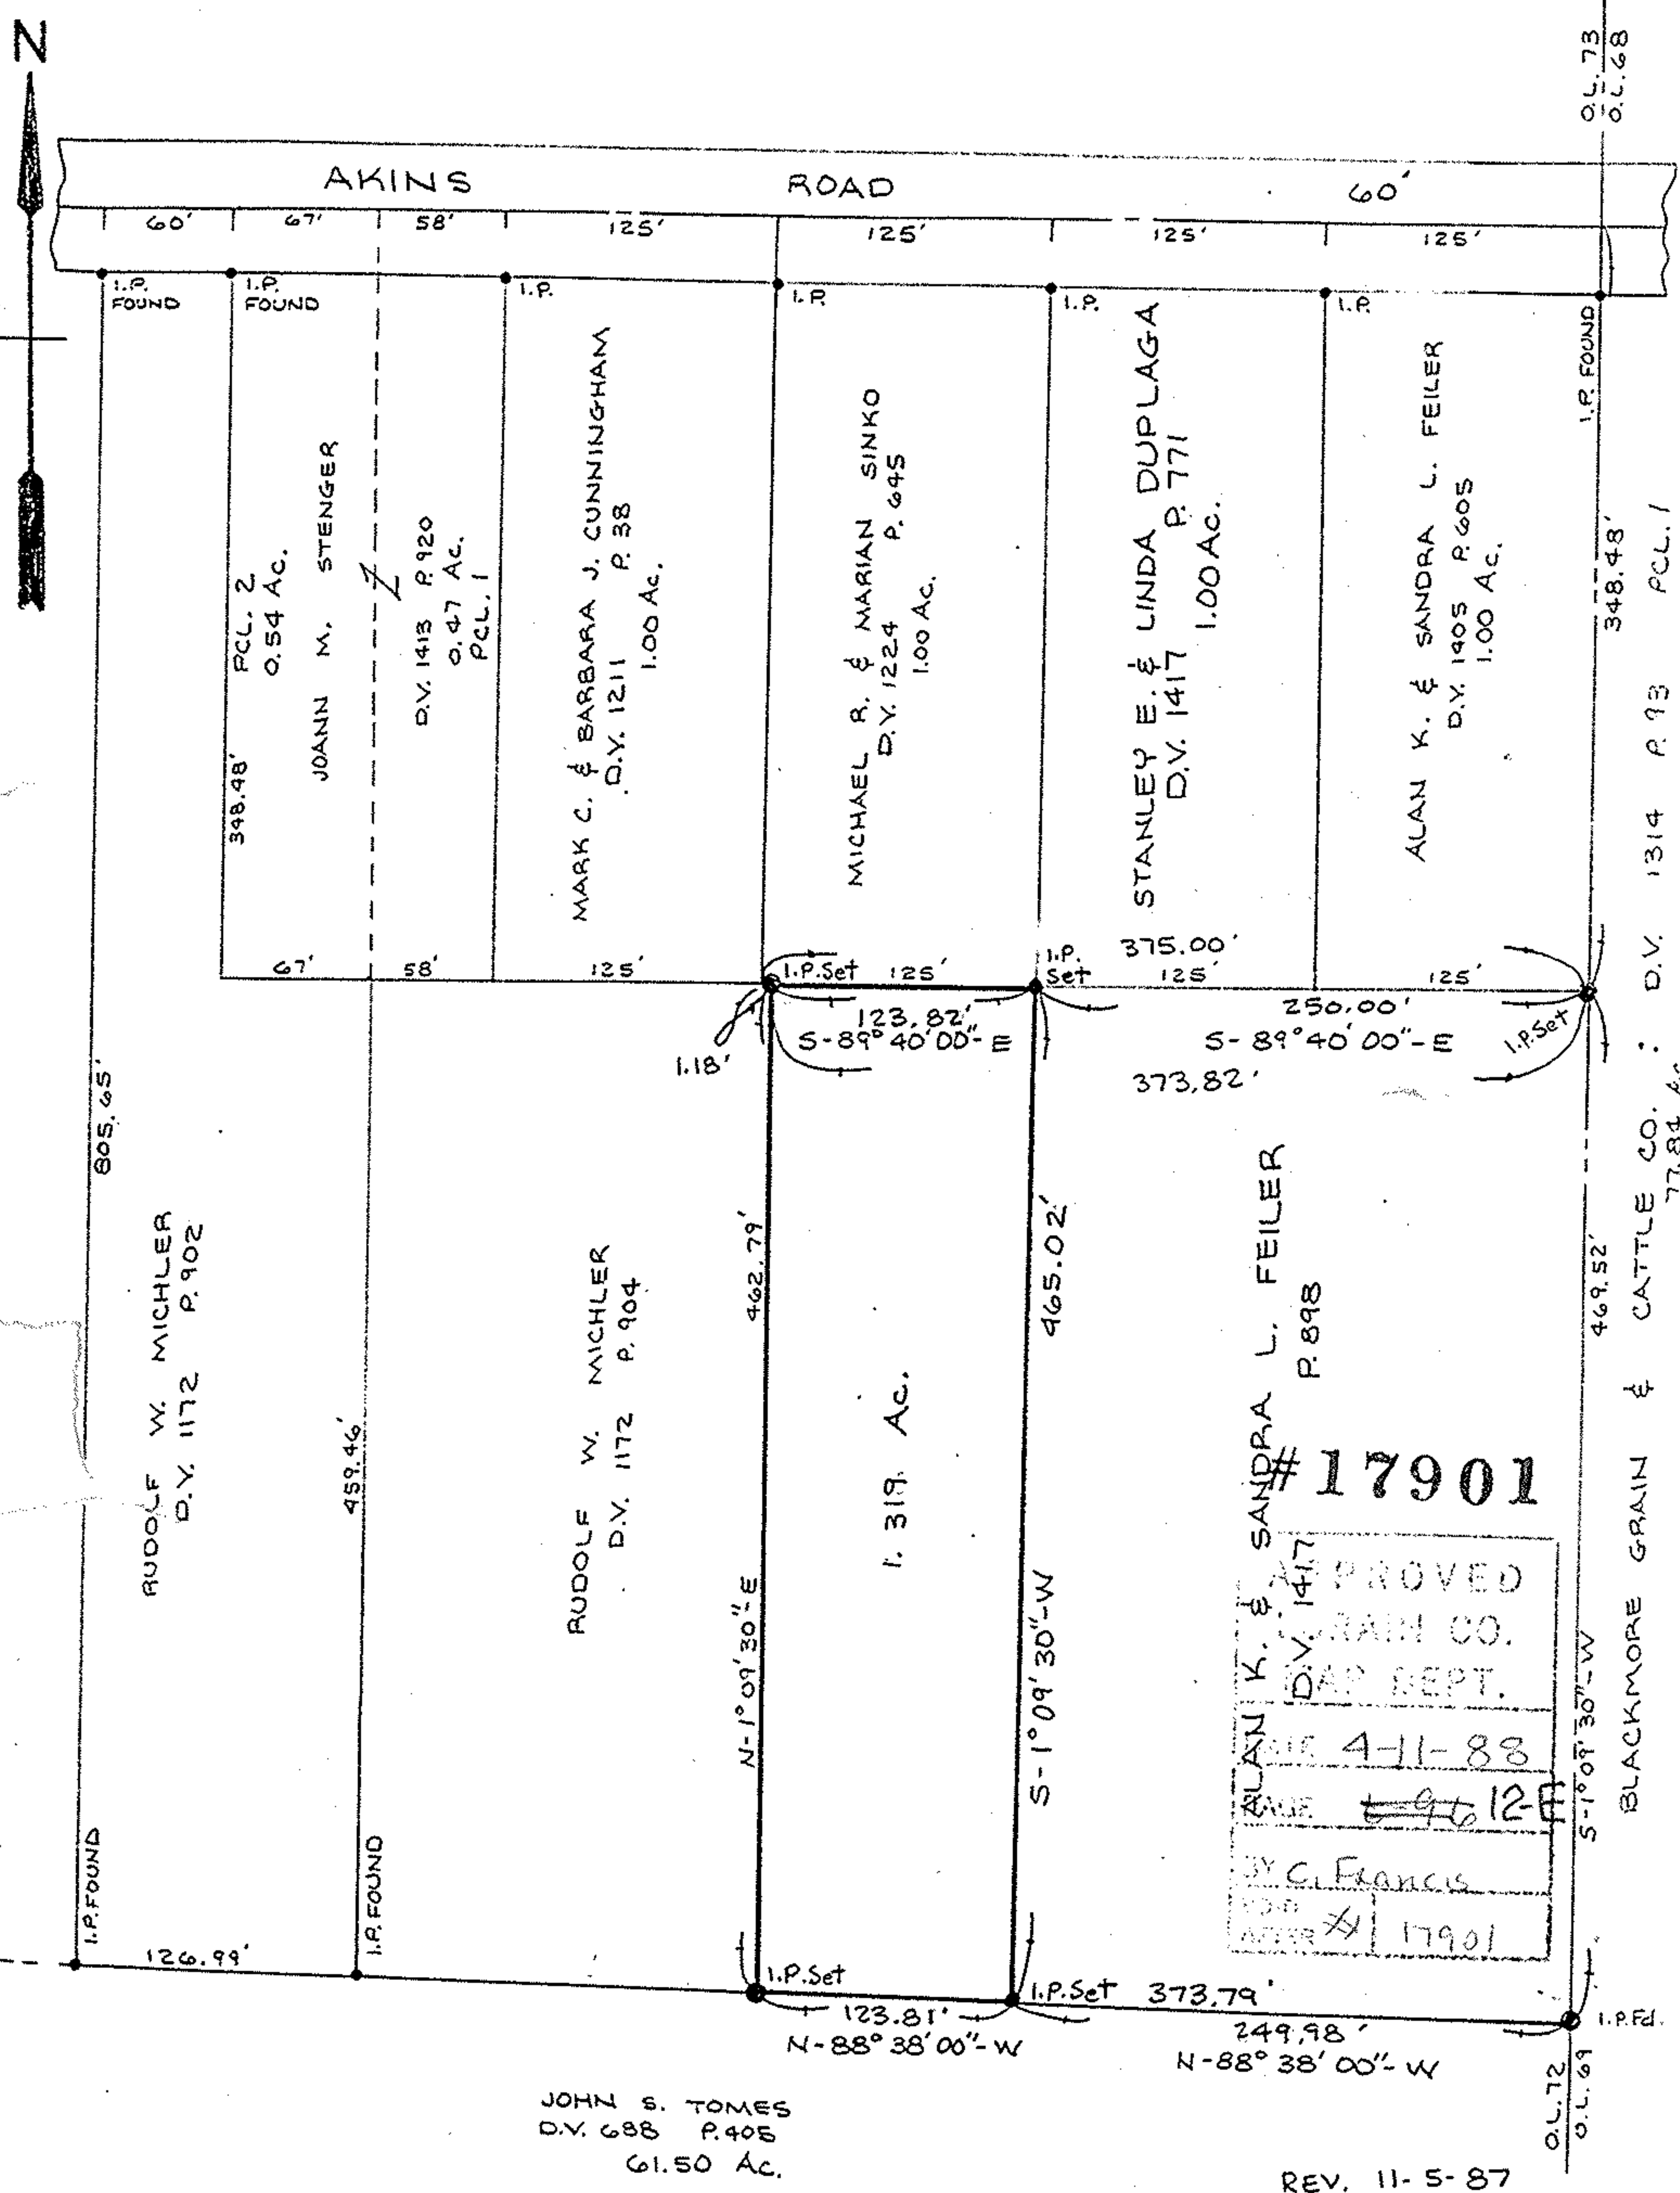 N
O.L. 73
O.L. 68
AKINS ROAD 60'
60' 67' 58' 125' 125' 125' 125'
I.P.
FOUND
I.P.
FOUND
I.P.
I.P.
I.P.
I.P.
I.P. FOUND
PCL. 2
0.54 Ac.
JOANN M. STENGER
Z
D.V. 1413 P. 920
0.47 Ac.
PCL. 1
348.48'
MARK C. & BARBARA J. CUNNINGHAM
D.V. 1211 P. 38
1.00 Ac.
MICHAEL R. & MARIAN SINKO
D.V. 1224 P. 645
1.00 Ac.
STANLEY E. & LINDA DUPLAGA
D.V. 1417 P. 771
1.00 Ac.
ALAN K. & SANDRA L. FEILER
D.V. 1405 P. 605
1.00 Ac.
348.48'
BLACKMORE GRAIN & CATTLE CO. : D.V. 1314 P. 93 PCL. 1
77.84 Ac.
67' 58' 125'
I.P. Set
125'
I.P.
Set
375.00'
125' 125'
1.18'
123.82'
S-89°40'00"-E
250.00'
S-89°40'00"-E
I.P. Set
373.82'
805.65'
RUDOLF W. MICHLER
D.V. 1172 P. 902
459.46'
RUDOLF W. MICHLER
D.V. 1172 P. 904
462.79'
N-1°09'30"-E
1.319 Ac.
465.02'
S-1°09'30"-W
ALAN K. & SANDRA L. FEILER
D.V. 1417 P. 898
469.52'
S-1°09'30"-W
#17901
APPROVED
LORAIN CO.
MAP DEPT.
DATE 4-11-88
PAGE 12-E
BY C. Francis
17901
I.P. FOUND
I.P. FOUND
126.99'
I.P. Set
123.81'
N-88°38'00"-W
I.P. Set
373.79'
249.98'
N-88°38'00"-W
I.P. Fd.
O.L. 72
O.L. 69
JOHN S. TOMES
D.V. 688 P. 405
61.50 Ac.
REV. 11-5-87